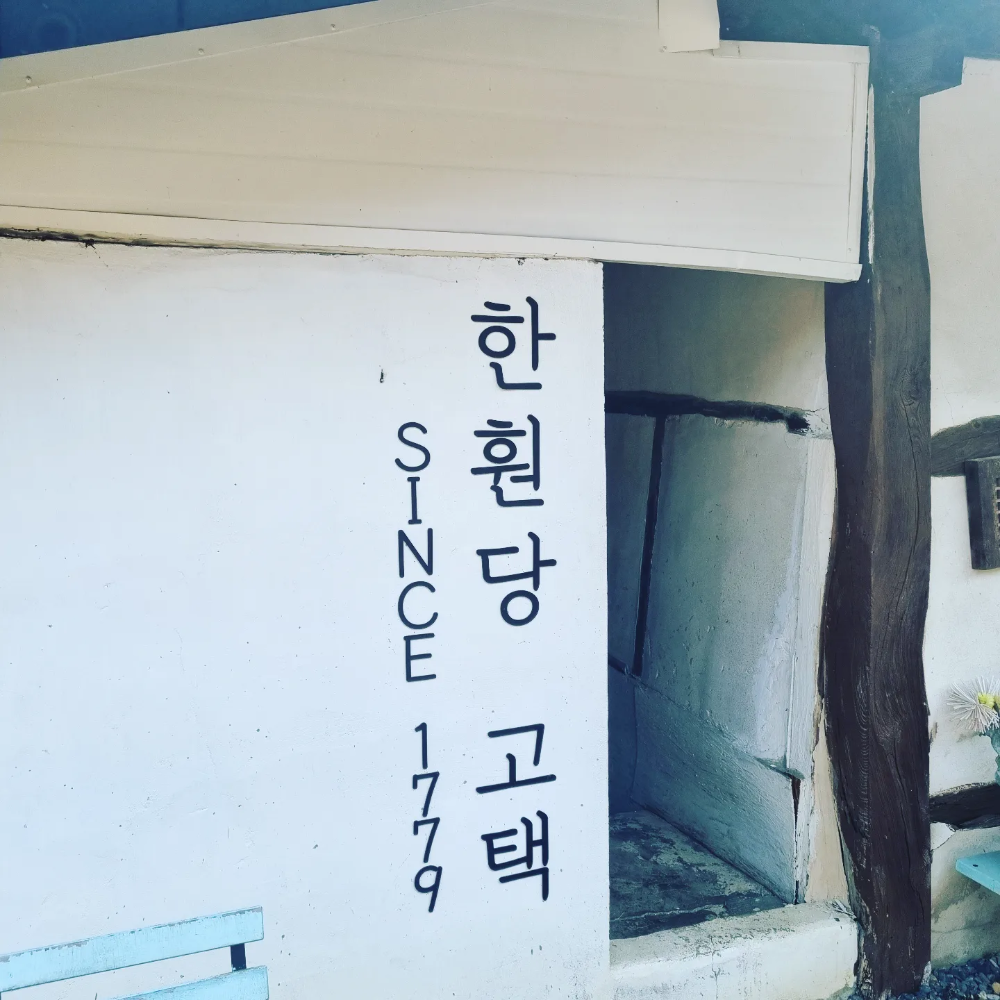 한훤당 고택
SINCE 1779